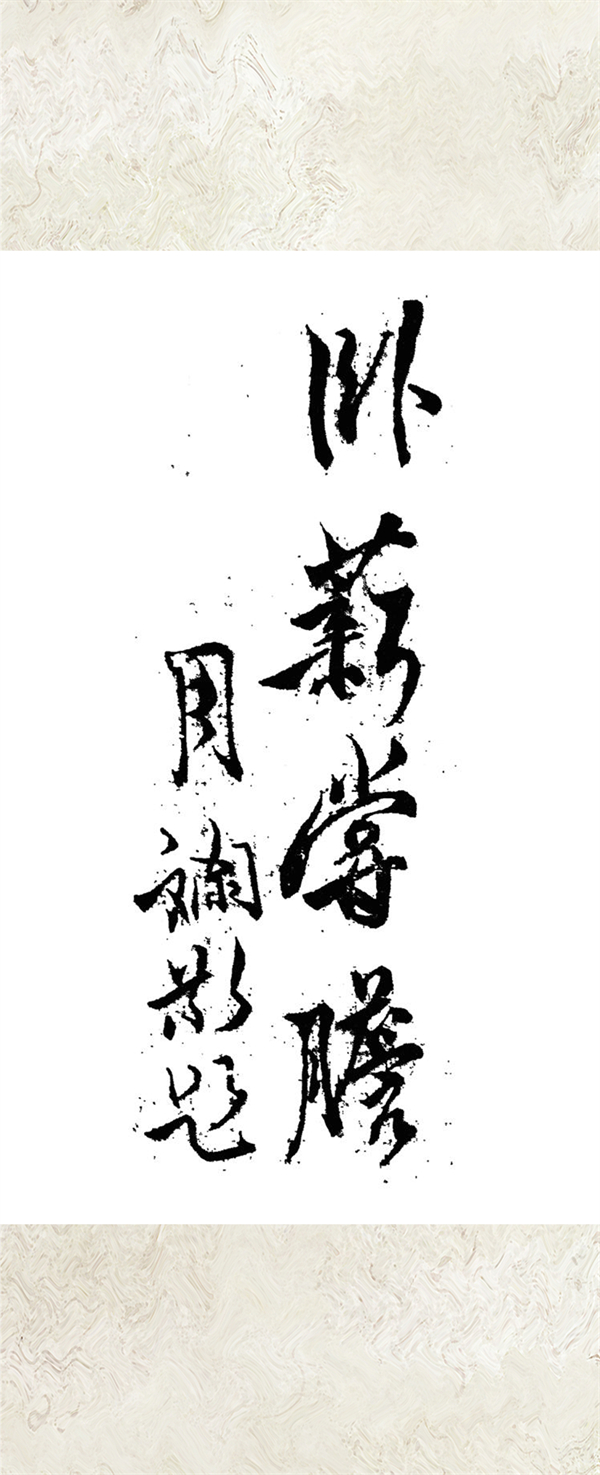 卧薪嘗膽
周斓影題